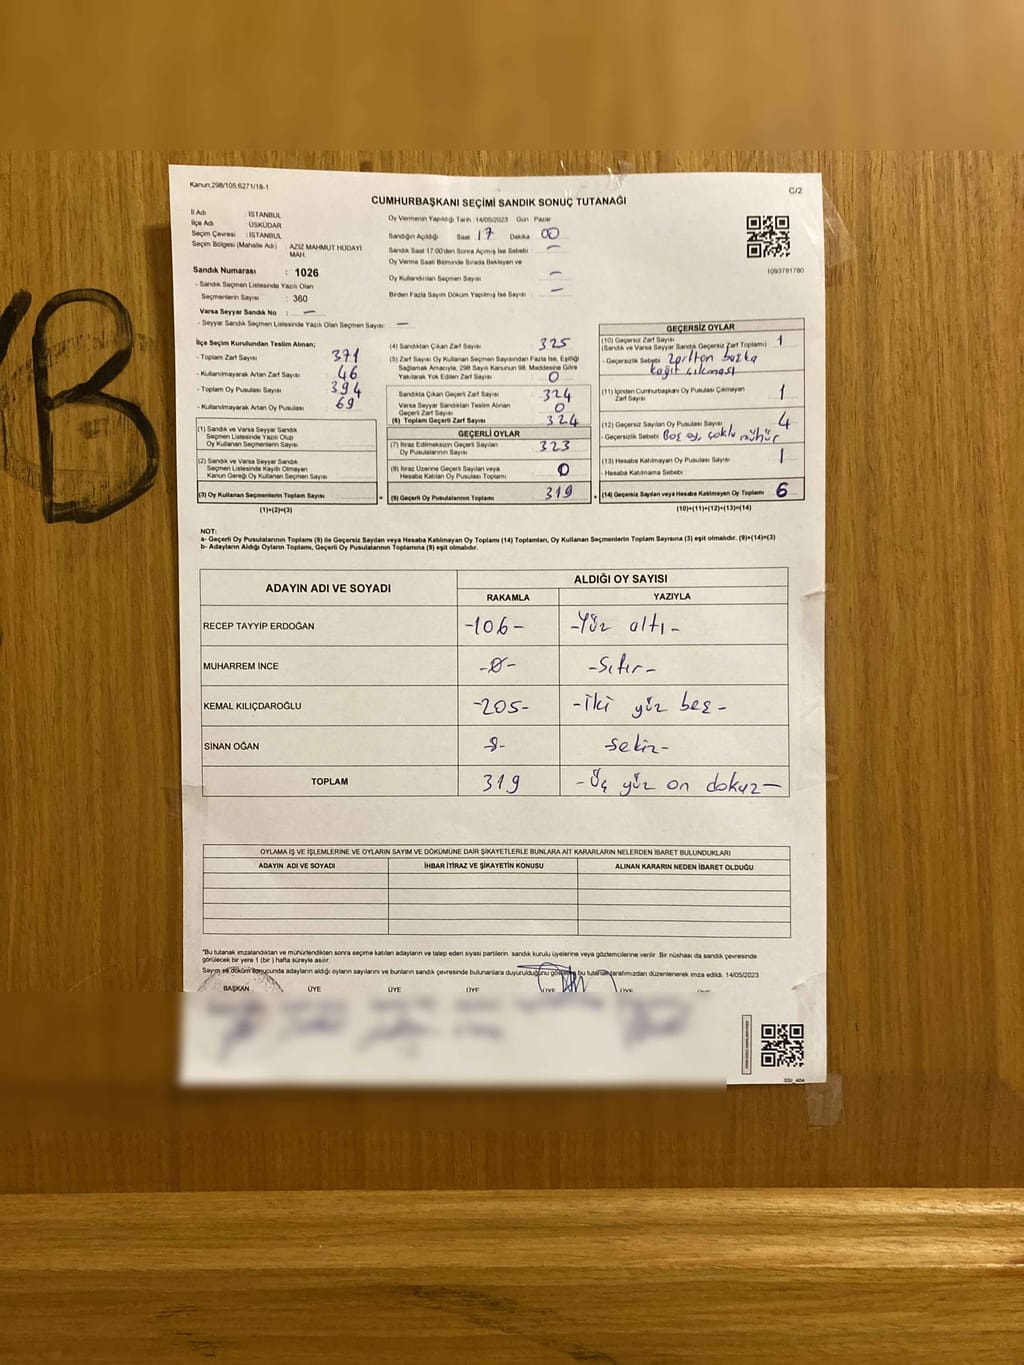 Kanun;298/105;6271/18-1
C/2
CUMHURBAŞKANI SEÇİMİ SANDIK SONUÇ TUTANAĞI
İl Adı : İSTANBUL
İlçe Adı : ÜSKÜDAR
Seçim Çevresi : İSTANBUL
Seçim Bölgesi (Mahalle Adı) : AZİZ MAHMUT HÜDAYİ
MAH.
Sandık Numarası : 1026
- Sandık Seçmen Listesinde Yazılı Olan
Seçmenlerin Sayısı : 360
Varsa Seyyar Sandık No : —
- Seyyar Sandık Seçmen Listesinde Yazılı Olan Seçmen Sayısı : —
Oy Vermenin Yapıldığı Tarih : 14/05/2023 Gün : Pazar
Sandığın Açıldığı Saat 17 Dakika 00
Sandık Saat 17:00'den Sonra Açılmış İse Sebebi : —
Oy Verme Saati Bitiminde Sırada Bekleyen ve
Oy Kullandırılan Seçmen Sayısı : —
Birden Fazla Sayım Döküm Yapılmış İse Sayısı : —
1093781780
İlçe Seçim Kurulundan Teslim Alınan;
- Toplam Zarf Sayısı : 371
- Kullanılmayarak Artan Zarf Sayısı : 46
- Toplam Oy Pusulası Sayısı : 394
- Kullanılmayarak Artan Oy Pusulası : 69
(1) Sandık ve Varsa Seyyar Sandık
Seçmen Listesinde Yazılı Olup
Oy Kullanan Seçmenlerin Sayısı
(2) Sandık ve Varsa Seyyar Sandık
Seçmen Listesinde Kayıtlı Olmayan
Kanun Gereği Oy Kullanan Seçmen Sayısı
(3) Oy Kullanan Seçmenlerin Toplam Sayısı
=
(1)+(2)=(3)
(4) Sandıktan Çıkan Zarf Sayısı : 325
(5) Zarf Sayısı Oy Kullanan Seçmen Sayısından Fazla İse, Eşitliği
Sağlamak Amacıyla, 298 Sayılı Kanunun 98. Maddesine Göre
Yakılarak Yok Edilen Zarf Sayısı : 0
Sandıkta Çıkan Geçerli Zarf Sayısı : 324
Varsa Seyyar Sandıktan Teslim Alınan
Geçerli Zarf Sayısı : 0
(6) Toplam Geçerli Zarf Sayısı : 324
GEÇERLİ OYLAR
(7) İtiraz Edilmeksizin Geçerli Sayılan
Oy Pusulasının Sayısı : 323
(8) İtiraz Üzerine Geçerli Sayılan veya
Hesaba Katılan Oy Pusulası Toplamı : 0
(9) Geçerli Oy Pusulalarının Toplamı : 319
+
GEÇERSİZ OYLAR
(10) Geçersiz Zarf Sayısı
(Sandık ve Varsa Seyyar Sandık Geçersiz Zarf Toplamı) : 1
- Geçersizlik Sebebi : Zarftan başka
kağıt çıkması
(11) İçinden Cumhurbaşkanı Oy Pusulası Çıkmayan
Zarf Sayısı : 1
(12) Geçersiz Sayılan Oy Pusulası Sayısı : 4
- Geçersizlik Sebebi : Boş oy, çoklu mühür
(13) Hesaba Katılmayan Oy Pusulası Sayısı : 1
- Hesaba Katılmama Sebebi :
(14) Geçersiz Sayılan veya Hesaba Katılmayan Oy Toplamı : 6
(10)+(11)+(12)+(13)=(14)
NOT:
a- Geçerli Oy Pusulalarının Toplamı (9) ile Geçersiz Sayılan veya Hesaba Katılmayan Oy Toplamı (14) Toplamları, Oy Kullanan Seçmenlerin Toplam Sayısına (3) eşit olmalıdır. (9)+(14)=(3)
b- Adayların Aldığı Oyların Toplamı, Geçerli Oy Pusulalarının Toplamına (9) eşit olmalıdır.
ADAYIN ADI VE SOYADI ALDIĞI OY SAYISI
RAKAMLA YAZIYLA
RECEP TAYYİP ERDOĞAN -106- -Yüz altı-
MUHARREM İNCE -0- -Sıfır-
KEMAL KILIÇDAROĞLU -205- -İki yüz beş-
SİNAN OĞAN -8- sekiz-
TOPLAM 319 -Üç yüz on dokuz-
OYLAMA İŞ VE İŞLEMLERİNE VE OYLARIN SAYIM VE DÖKÜMÜNE DAİR ŞİKAYETLERLE BUNLARA AİT KARARLARIN NELERDEN İBARET BULUNDUKLARI
ADAYIN ADI VE SOYADI İHBAR İTİRAZ VE ŞİKAYETİN KONUSU ALINAN KARARIN NEDEN İBARET OLDUĞU
*Bu tutanak imzalandıktan ve mühürlendikten sonra seçime katılan adayların ve talep eden siyasi partilerin sandık kurulu üyelerine veya gözlemcilerine verilir. Bir nüshası da sandık çevresinde
görülecek bir yere 1 (bir) hafta süreyle asılır.
Sayım ve döküm sonucunda adayların aldığı oyların sayılarını ve bunların sandık çevresinde bulunanlara duyurulduğunu gösteren bu tutanak tarafımızdan düzenlenerek imza edildi. 14/05/2023
BAŞKAN ÜYE ÜYE ÜYE ÜYE ÜYE
B